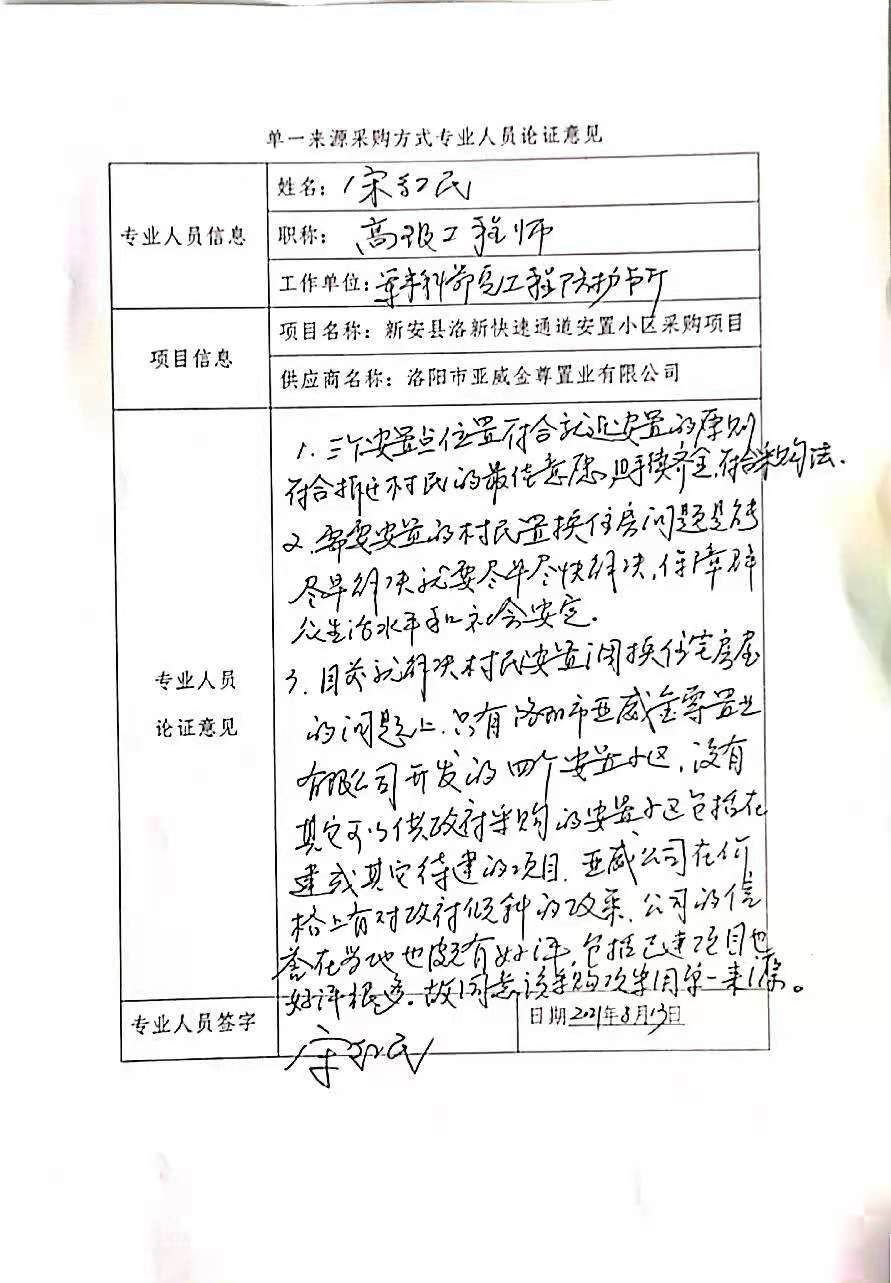 单一来源采购方式专业人员论证意见
专业人员信息
姓名：宋红民
职称：高级工程师
工作单位：军事科学院工程防护
项目信息
项目名称：新安县洛新快速通道安置小区采购项目
供应商名称：洛阳市亚威金尊置业有限公司
专业人员
论证意见
1. 三个安置点位置符合就近安置的原则
符合拆迁村民的最佳意愿，且手续齐全，符合采购法.
2. 需要安置的村民置换住房问题是能
尽早解决就要尽早尽快解决，保障群
众生活水平和社会安定.
3. 目前就解决村民安置调换住宅房屋
的问题上，只有洛阳市亚威金尊置业
有限公司开发的四个安置小区，没有
其它可以供政府采购的安置小区包括在
建或其它待建的项目. 亚威公司在价
格上有对政府倾斜的政策，公司的信
誉在当地也颇有好评，包括已建项目也
好评很多. 故同意该采购项采用单一来源。
专业人员签字
宋红民
日期2021年8月13日